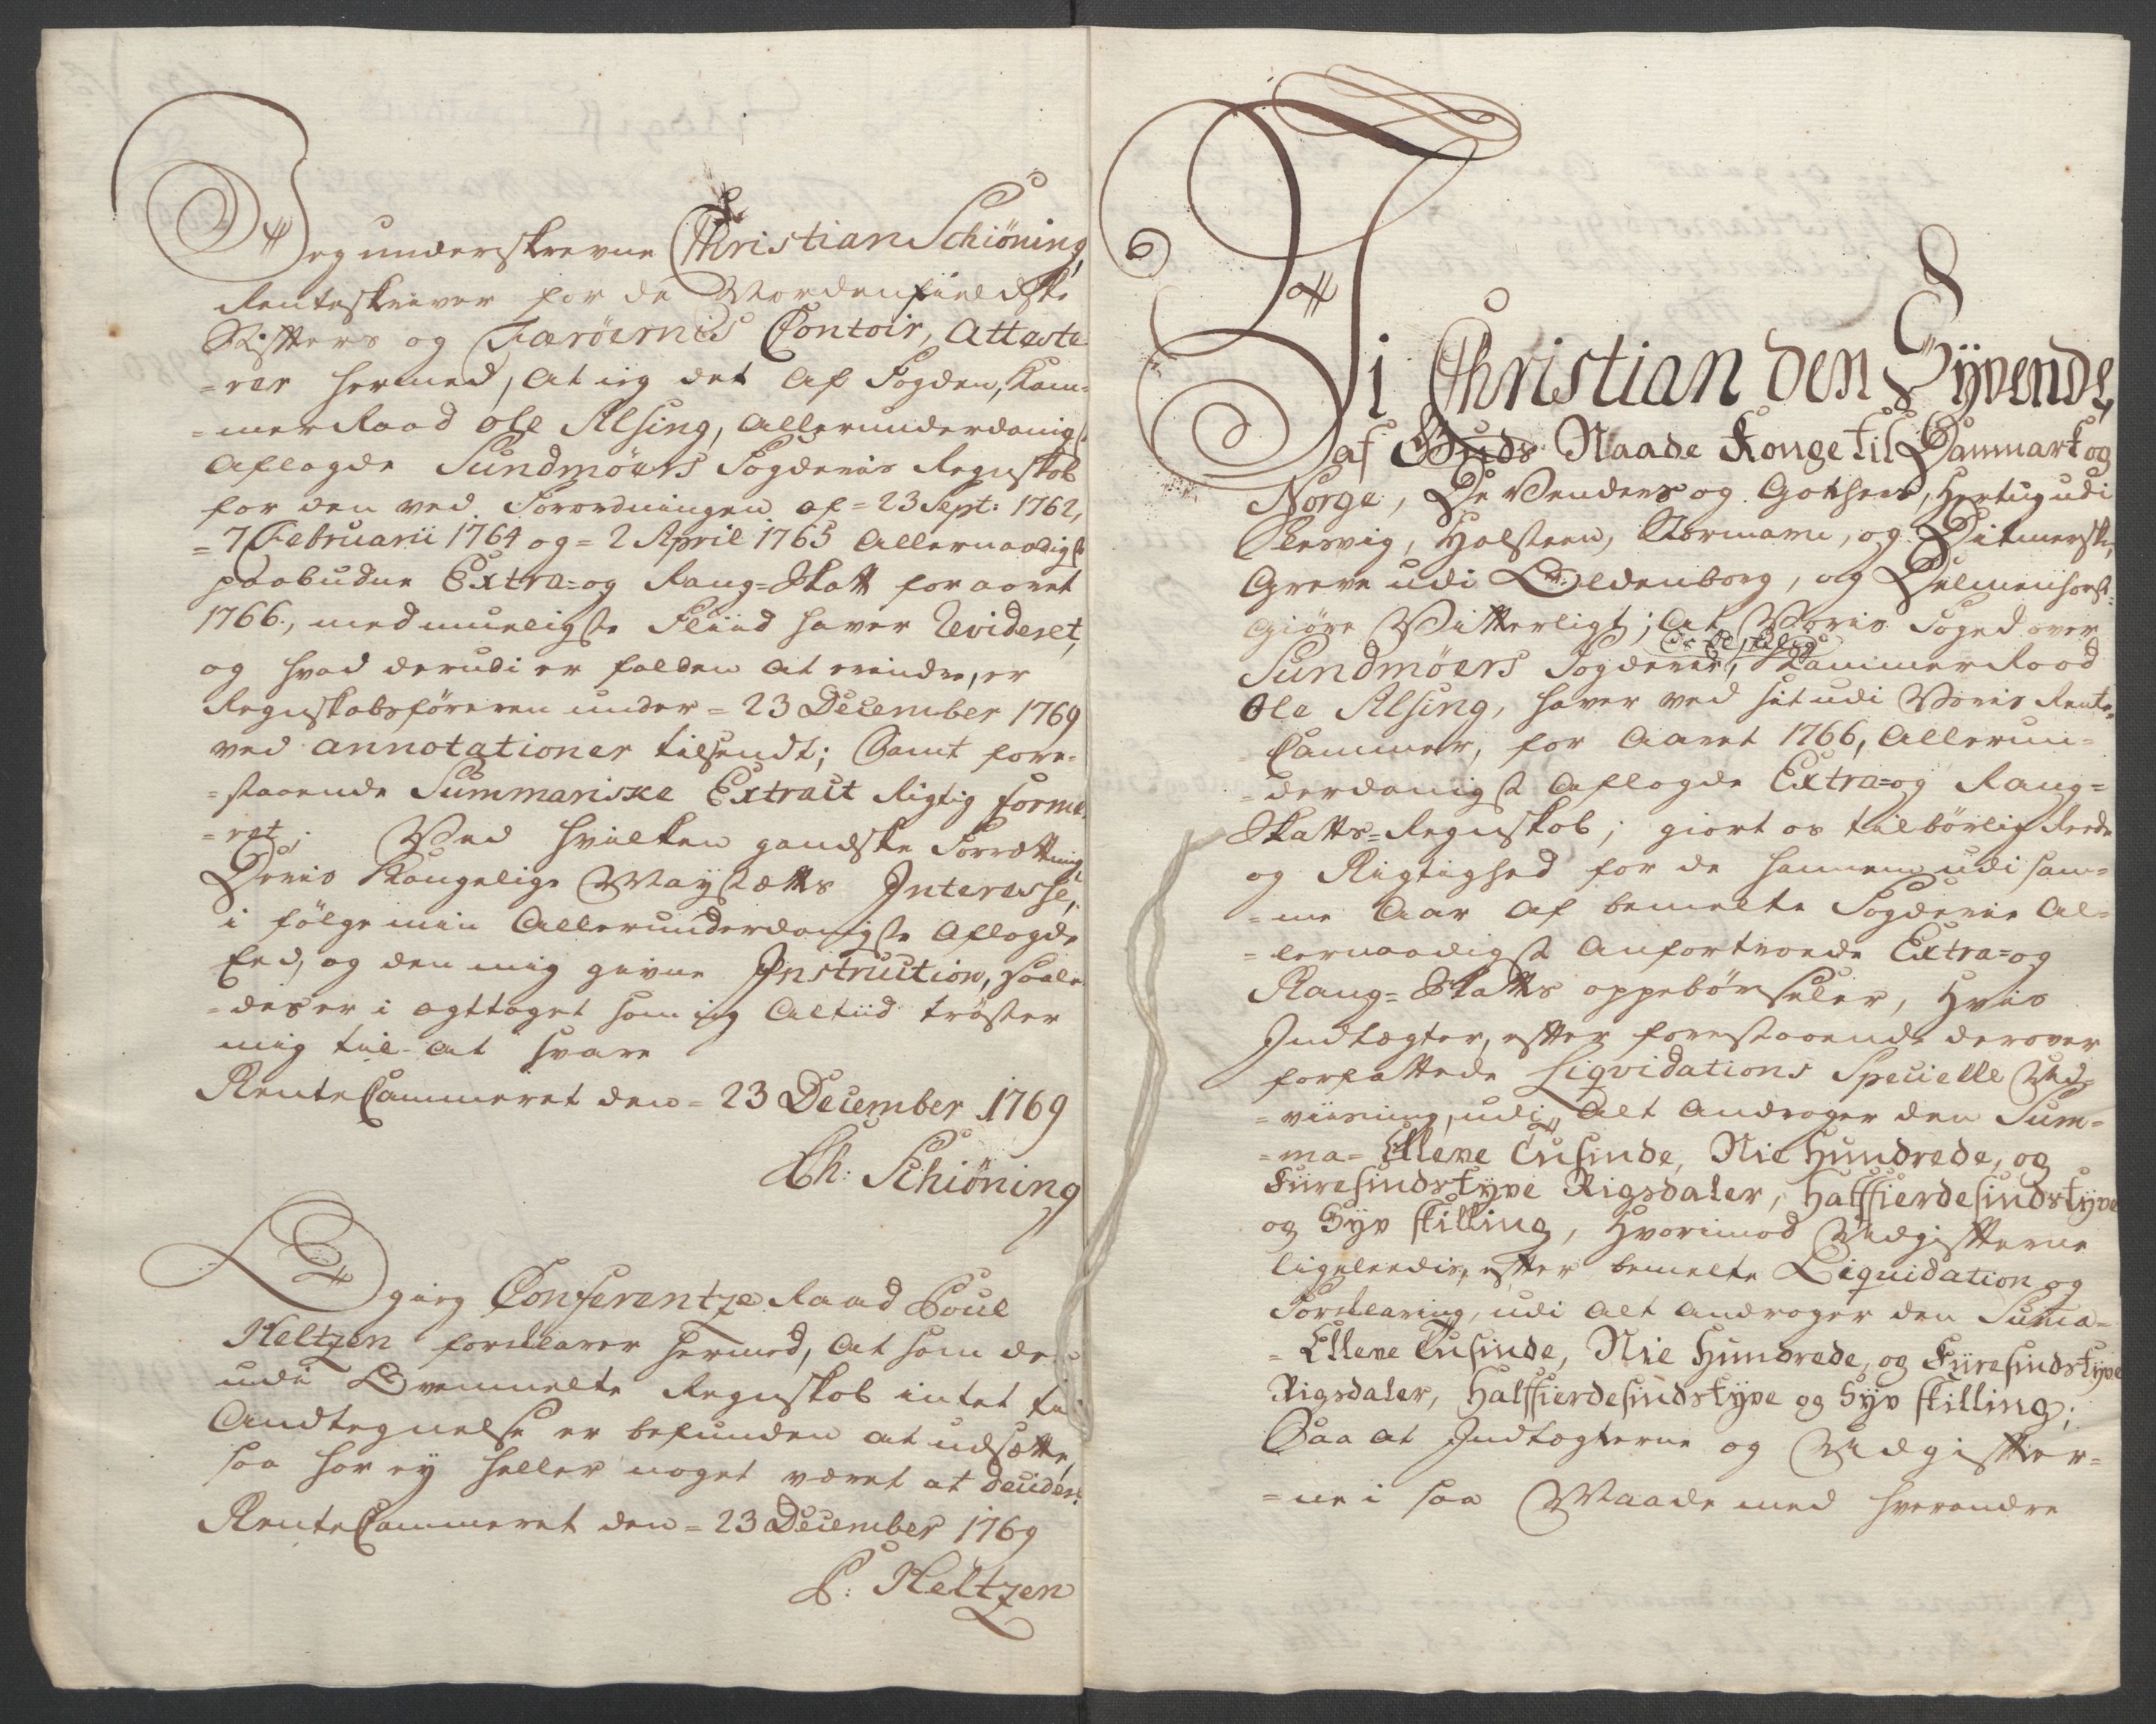 Jeg underskrevne Christian Schiöning,
Renteskriver for de Nordenfieldske
Stifters og Færöernis Contoir, Atteste-
=rer hermed, at ieg det af Fogden, Kam-
=merRaad Ole Alsing, allerunderdanigst
aflagde Sundmöers Fogderies Regnskab
for den ved Forordningen af = 23 Sept: 1762,
= 7 Februarii 1764 og = 2 April 1765 allernaadigst
paabudne Extra= og Rang=Skatt for aaret
1766, med mueligste Fliid haver Revideret,
og hvad derudi er falden at erindre, er
Regnskabsföreren under = 23 December 1769
ved annotationer tilsendt; Samt fore-
=staaende Summariske Extract Rigtig forme-
=ret; Ved hvilken gandske Forrettning
Deris Kongelige Mayestætts Interesse,
i fölge min allerunderdanigste aflagde
Eed, og den mig givne Instruction, saale-
=des er i agttaget som ieg altiid tröster
mig til at svare
RenteCammeret den = 23 December 1769
Ch: Schiöning
Og ieg ConferentzeRaad Poul
Heltzen forklarer hermed, at som der
udi Ovenmelte Regnskab intet til
Andtegnelse er befunden at udsætte,
saa har ey heller noget været at decidere.
RenteCammeret den = 23 December 1769
P: Heltzen
Vi Christian den Syvende,
af Guds Naade Konge til Danmark og
Norge, De Venders og Gothers, Hertug udi
Slesvig, Holsteen, Stormarn, og Ditmersken,
Greve udi Oldenborg, og Delmenhorst:
Giöre Vitterligt; at Voris Foged over
Sundmöers Fogderie, KammerRaad
Ole Alsing, haver ved sit udi Voris Rente-
Cammer, for Aaret 1766, Allerun-
=derdanigst aflagde Extra= og Rang=
Skatts=Regnskab; giort os tilbörlig Reede
og Rigtighed for de hannem udi sam-
=me Aar af bemelte Fogderie Al-
=lernaadigst anfortroede Extra= og
Rang=Skatts oppebörseler, Hvis
Indtægter, efter forestaaende derover
forfattede Liqvidations Specielle Ud-
=viisning, udi alt andrager den Sum-
=ma = Elleve Tusinde, Nie Hundrede, og
Fiiresindstyve Rigsdaler, Halffierdesindstyve
og Syv skilling, Hvorimod Udgifterne
ligeleedis, efter bemelte Liquidation og
Forklaring, udi alt andrager den Suma=
= Elleve Tusinde, Nie Hundrede, og Fiiresindstyve
Rigsdaler, Halffierdesindstyve og Syv skilling;
Saa at Indtægterne og Udgifter-
=ne i saa Maade med hverandre